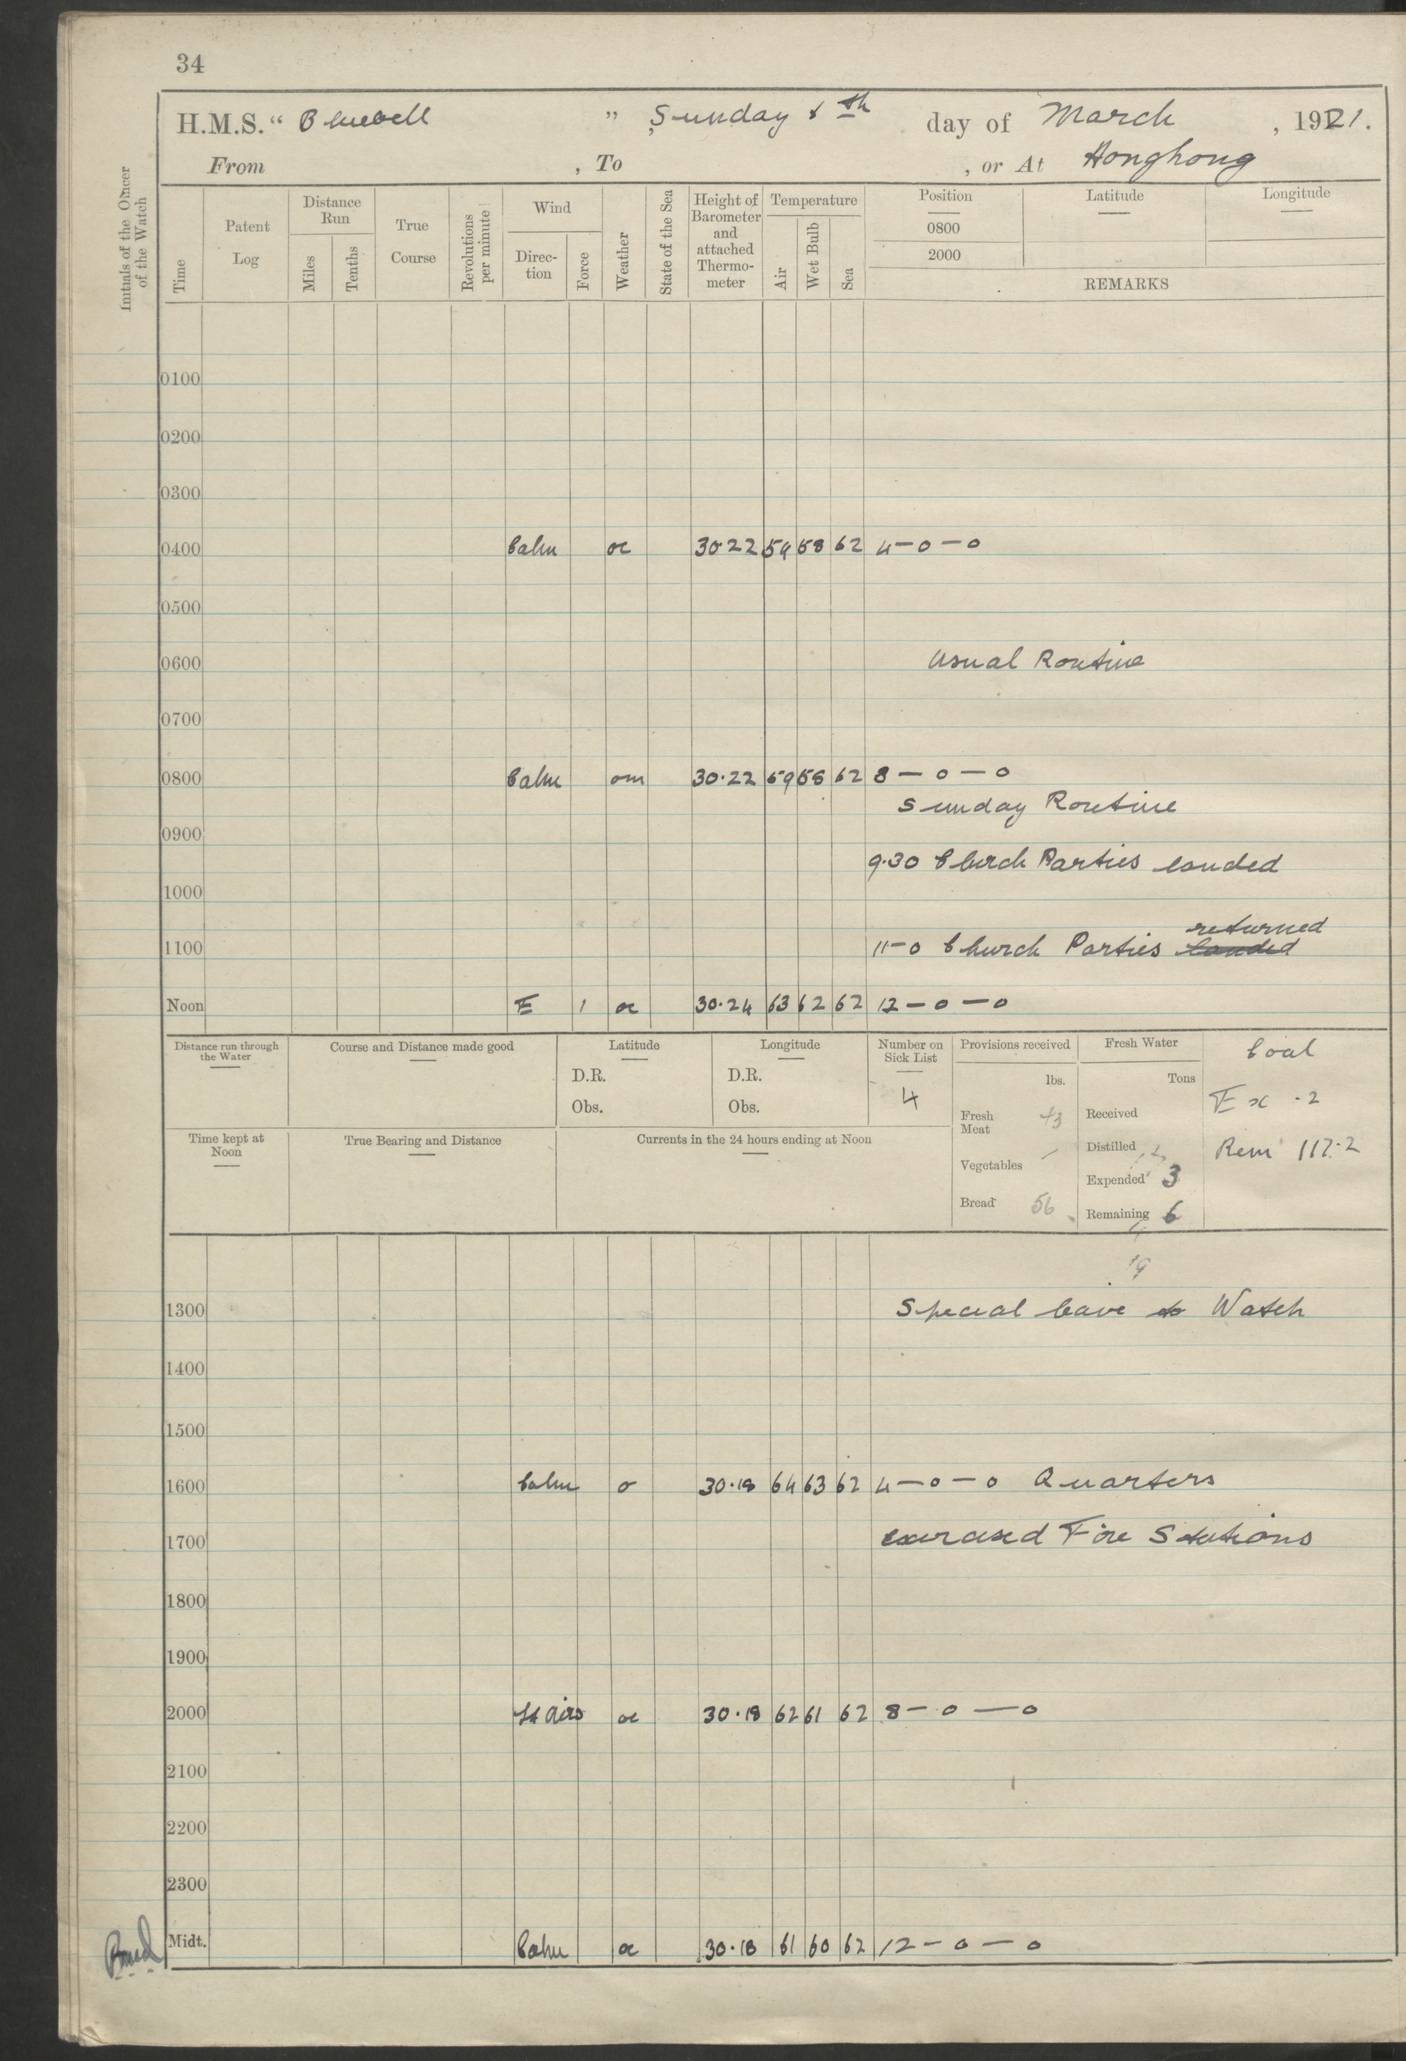 34
H.M.S. “ Bluebell ” Sunday 6th day of March , 1921.
From , To , or At Hongkong
Initials of the Officer of the Watch
Time
Patent Log
Distance Run
Miles
Tenths
True Course
Revolutions per minute
Wind
Direc- tion
Force
Weather
State of the Sea
Height of Barometer and attached Thermo- meter
Temperature
Air
Wet Bulb
Sea
Position
0800
2000
Latitude
Longitude
REMARKS
0100
0200
0300
0400 Calm oc 30.22 59 58 62 4 – 0 – 0
0500
0600 Usual Routine
0700
0800 Calm om 30.22 59 58 62 8 – 0 – 0
Sunday Routine
0900
9.30 Church Parties landed
1000
returned
1100 11–0 Church Parties landed
Noon E 1 oc 30.24 63 62 62 12 – 0 – 0
Distance run through the Water
Course and Distance made good
Latitude
D.R.
Obs.
Longitude
D.R.
Obs.
Number on Sick List
4
Provisions received
lbs.
Fresh Meat 43
Vegetables –
Bread 56
Fresh Water
Tons
Received
Distilled
Expended 3
Remaining 6
19
Coal
Ex .2
Rem 117.2
Time kept at Noon
True Bearing and Distance
Currents in the 24 hours ending at Noon
1300 Special leave to Watch
1400
1500
1600 Calm o 30.18 64 63 62 4 – 0 – 0 Quarters
1700 exercised Fire Stations
1800
1900
2000 Lt airs oc 30.18 62 61 62 8 – 0 – 0
2100
2200
2300
Midt. Calm oc 30.18 61 60 62 12 – 0 – 0